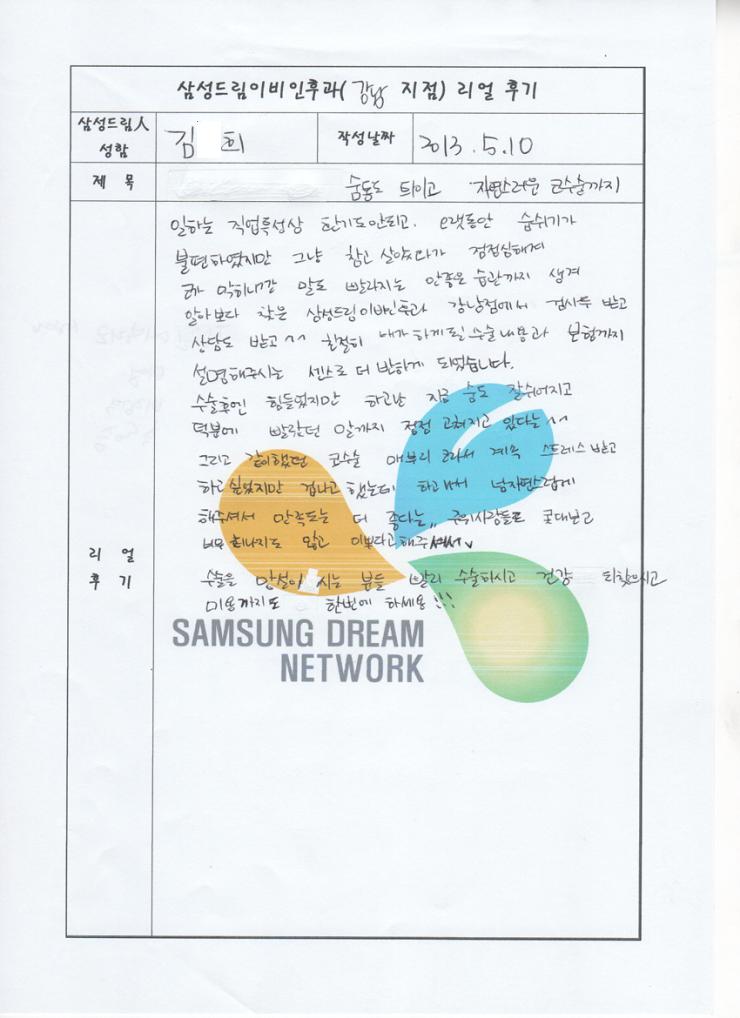 삼성드림이비인후과(강남 지점) 리얼 후기
삼성드림人 성함
김 희
작성날짜
2013.5.10
제 목
숨통도 트이고 자연스러운 코수술까지
일하는 직업특성상 환기도안되고. 오랫동안 숨쉬기가
불편하였지만 그냥 참고 살았다가 점점심해져
코가 막히니깐 말도 빨라지는 안좋은 습관까지 생겨
알아보다 찾은 삼성드림이비인후과 강남점에서 검사두 받고
상담도 받고^^ 친절히 내가하게될 수술내용과 보험까지
설명해주시는 센스로 더 반하게 되었습니다.
수술후엔 힘들었지만 하고난 지금 숨도 잘쉬어지고
덕분에 빨랐던 말까지 점점 고쳐지고 있다는^^
그리고 같이했던 코수술 매부리 코라서 계속 스트레스 받고
하고싶었지만 겁나고 했는데 하고나서 넘자연스럽게
해주셔서 만족도는 더 좋다는,, 주위사람들도
티나지도 않고 이쁘다고해주셔서
수술을 망설이 시는 분들 빨리 수술하시고 건강 되찾으시고
미용까지도 한번에 하세용!!!
리 얼
후 기
SAMSUNG DREAM
NETWORK